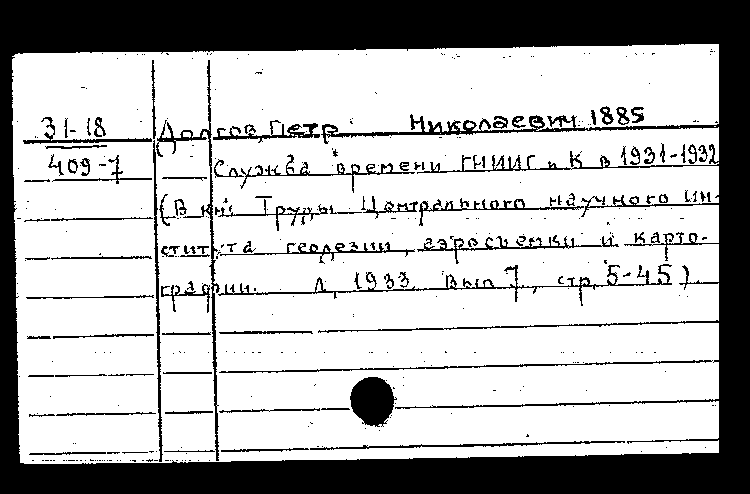 31-18
409-7
Долгов, Петр Николаевич 1885
Служба времени ГНИИГ и К в 1931-1932
(В кн: Труды Центрального научного ин-
ститута геодезии, аэросъемки и карто-
графии. Л, 1933. Вып 7, стр. 5-45).